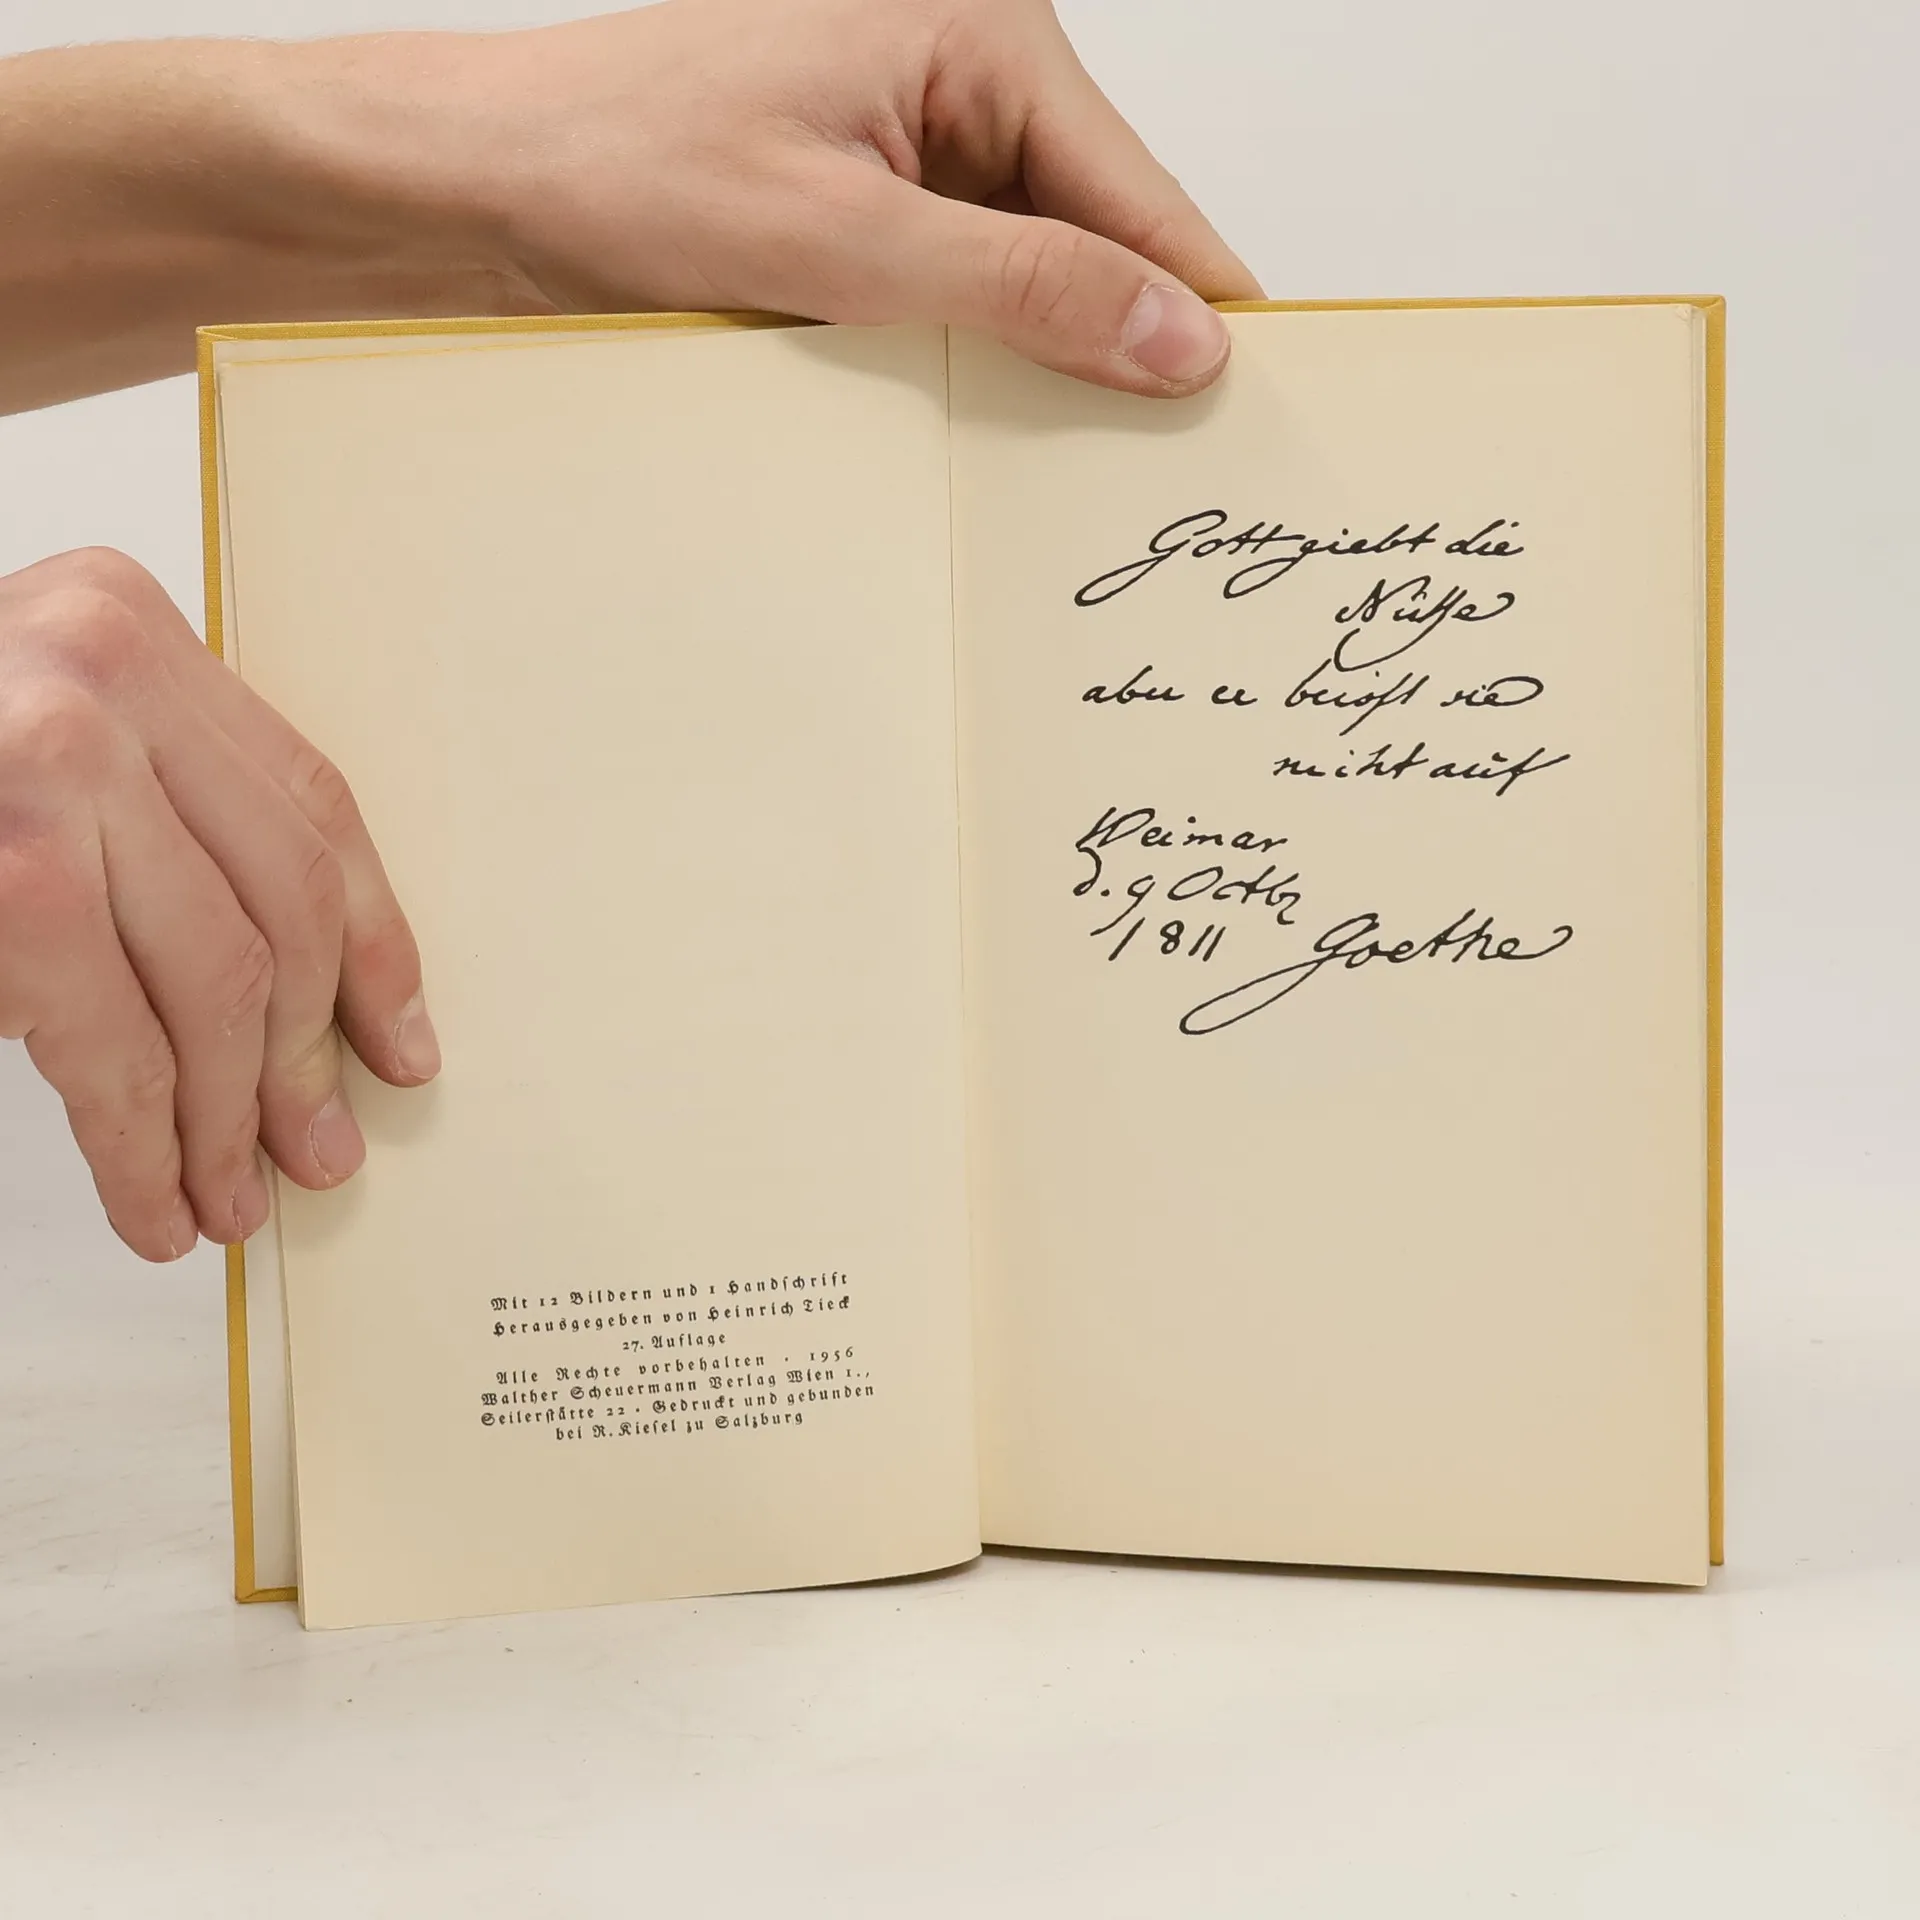 Mit 12 Bildern und 1 Handſchrift
Herausgegeben von Heinrich Tieck
27. Auflage
Alle Rechte vorbehalten . 1956
Walther Scheuermann Verlag Wien 1.,
Seilerſtätte 22 . Gedruckt und gebunden
bei R. Kieſel zu Salzburg
Gott giebt die
Nüße
aber er beißt sie
nicht auf
Weimar
d. 9 Octbr
1811 Goethe